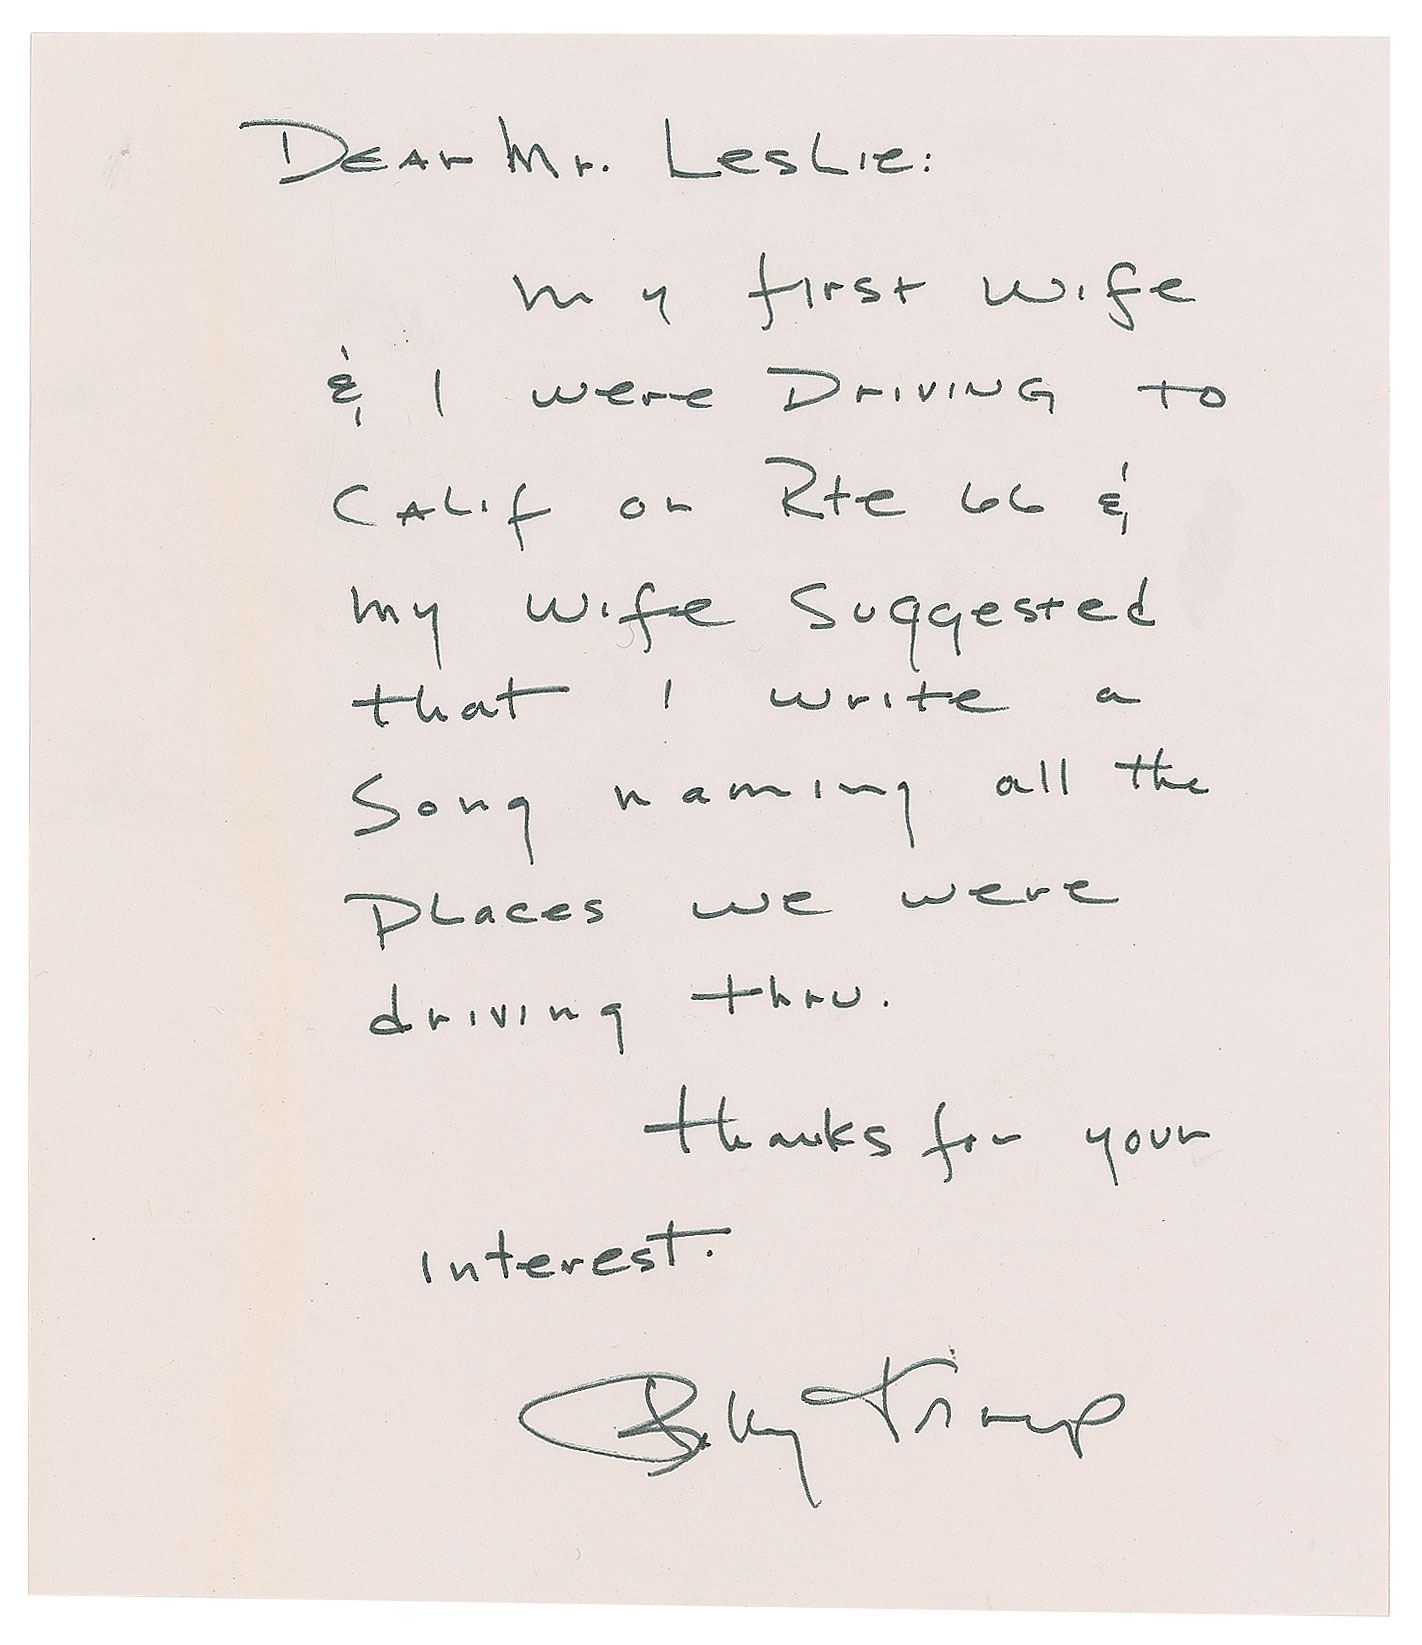 Dear Mr. Leslie:
my first wife
& I were Driving to
Calif on Rte 66 &
my wife suggested
that I write a
Song naming all the
places we were
driving thru.
thanks for your
interest.
Bobby Troup